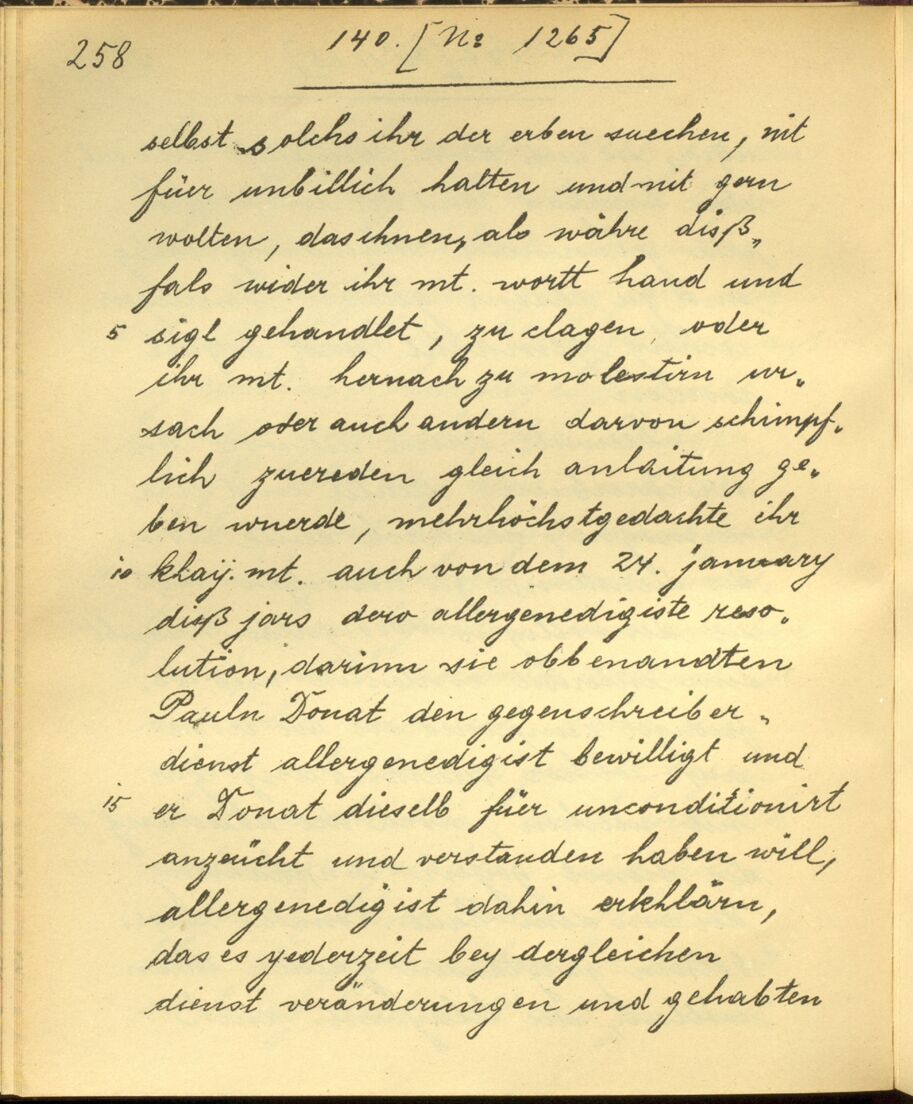 258
140. [No 1265]
selbst solchs ihr der erben suechen, nit
füer unbillich halten und nit gern
wolten, das ihnen, als währe disß„
fals wider ihr mt. wortt hand und
5 sigl gehandlet, zu clagen oder
ihr mt. hernach zu molestirn ur„
sach oder auch andern darvon schimpf„
lich zuereden gleich anlaitung ge„
ben wuerde, mehrhöchstgedachte ihr
10 khaÿ. mt. auch von dem 24. january
disß jars dero allergenedigiste reso„
lution, darinn sie obbenandten
Pauln Donat den gegenschreiber„
dienst allergenedigist bewilligt und
15 er Donat dieselb füer unconditionirt
anzeücht und verstanden haben will,
allergenedigist dahin erkhlärn,
das es yederzeit bey dergleichen
dienst veränderungen und gehabten